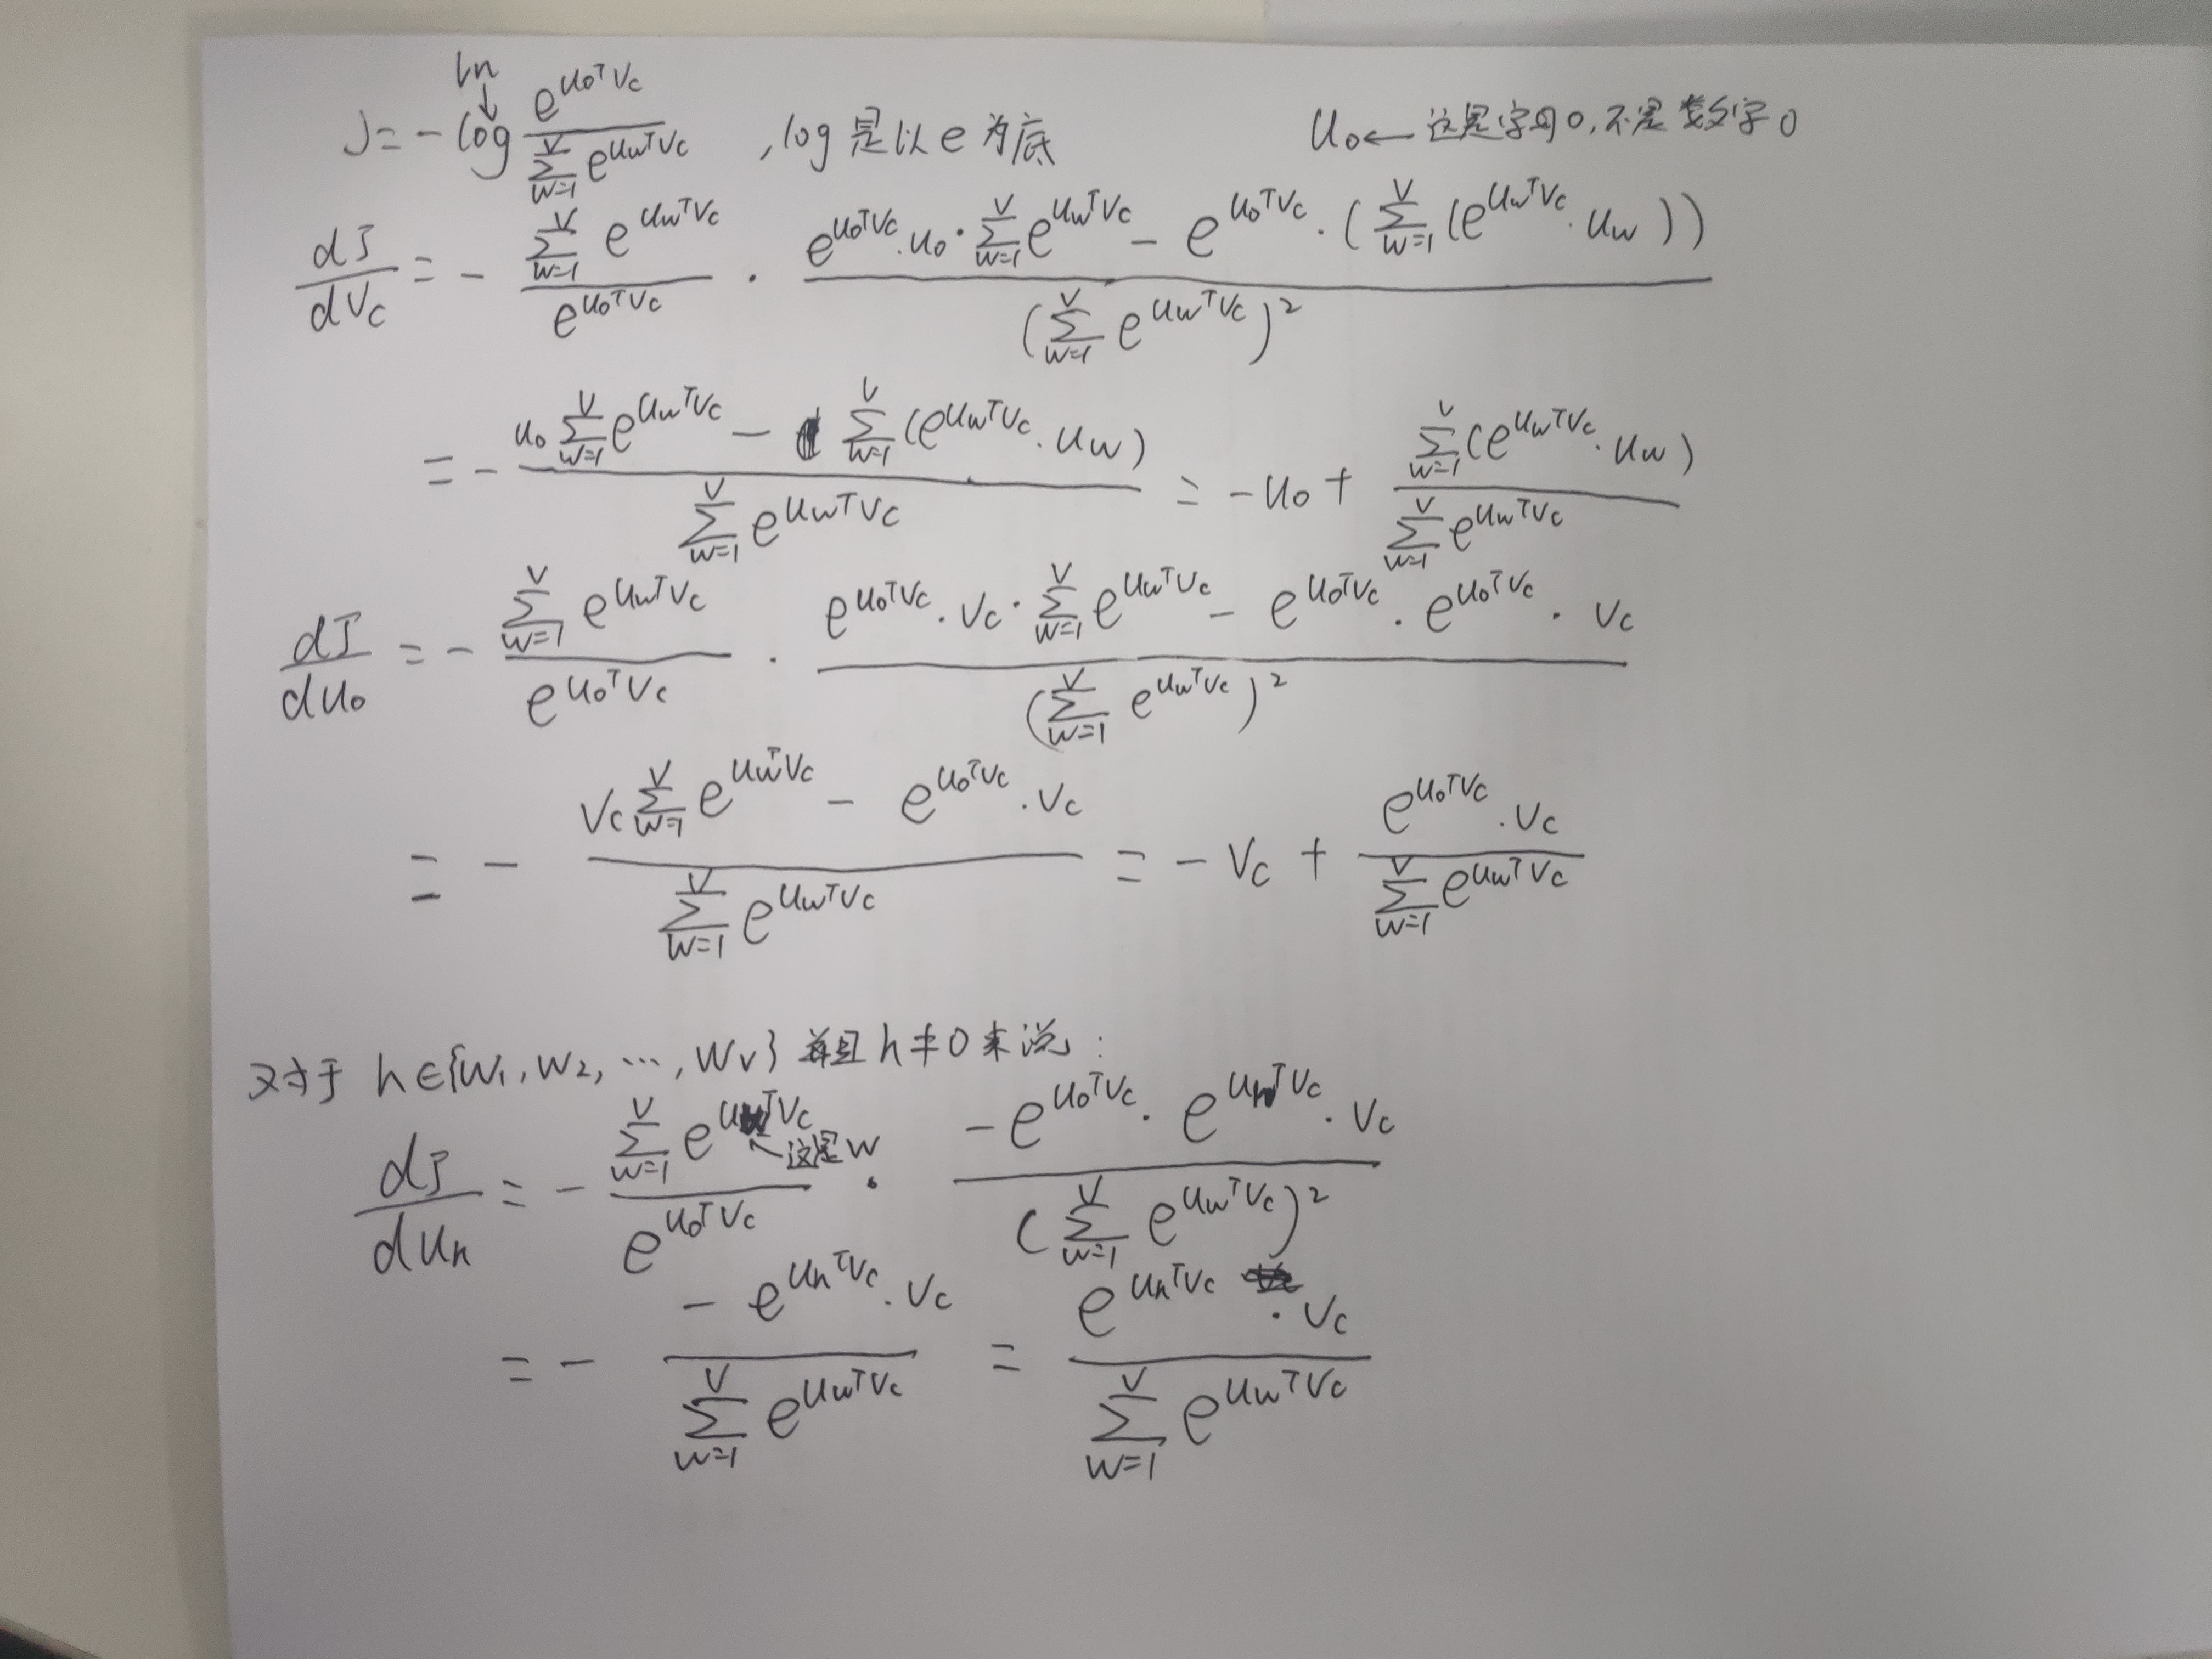 ln
↓
J = - log \frac{e^{u_o^T v_c}}{\sum_{w=1}^{V} e^{u_w^T v_c}} , log 是以 e 为底 u_o ← 这是字母o,不是数字0
\frac{dJ}{dv_c} = - \frac{\sum_{w=1}^{V} e^{u_w^T v_c}}{e^{u_o^T v_c}} · \frac{e^{u_o^T v_c} · u_o · \sum_{w=1}^{V} e^{u_w^T v_c} - e^{u_o^T v_c} · (\sum_{w=1}^{V} (e^{u_w^T v_c} · u_w))}{(\sum_{w=1}^{V} e^{u_w^T v_c})^2}
= - \frac{u_o \sum_{w=1}^{V} e^{u_w^T v_c} - \sum_{w=1}^{V} (e^{u_w^T v_c} · u_w)}{\sum_{w=1}^{V} e^{u_w^T v_c}} = - u_o + \frac{\sum_{w=1}^{V} (e^{u_w^T v_c} · u_w)}{\sum_{w=1}^{V} e^{u_w^T v_c}}
\frac{dJ}{du_o} = - \frac{\sum_{w=1}^{V} e^{u_w^T v_c}}{e^{u_o^T v_c}} · \frac{e^{u_o^T v_c} · v_c · \sum_{w=1}^{V} e^{u_w^T v_c} - e^{u_o^T v_c} · e^{u_o^T v_c} · v_c}{(\sum_{w=1}^{V} e^{u_w^T v_c})^2}
= - \frac{v_c \sum_{w=1}^{V} e^{u_w^T v_c} - e^{u_o^T v_c} · v_c}{\sum_{w=1}^{V} e^{u_w^T v_c}} = - v_c + \frac{e^{u_o^T v_c} · v_c}{\sum_{w=1}^{V} e^{u_w^T v_c}}
对于 h∈{w_1, w_2, ···, w_V} 并且 h≠o 来说:
\frac{dJ}{du_h} = - \frac{\sum_{w=1}^{V} e^{u_w^T v_c}}{e^{u_o^T v_c}} · \frac{- e^{u_o^T v_c} · e^{u_h^T v_c} · v_c}{(\sum_{w=1}^{V} e^{u_w^T v_c})^2}
↖ 这是w
= - \frac{- e^{u_h^T v_c} · v_c}{\sum_{w=1}^{V} e^{u_w^T v_c}} = \frac{e^{u_h^T v_c} · v_c}{\sum_{w=1}^{V} e^{u_w^T v_c}}